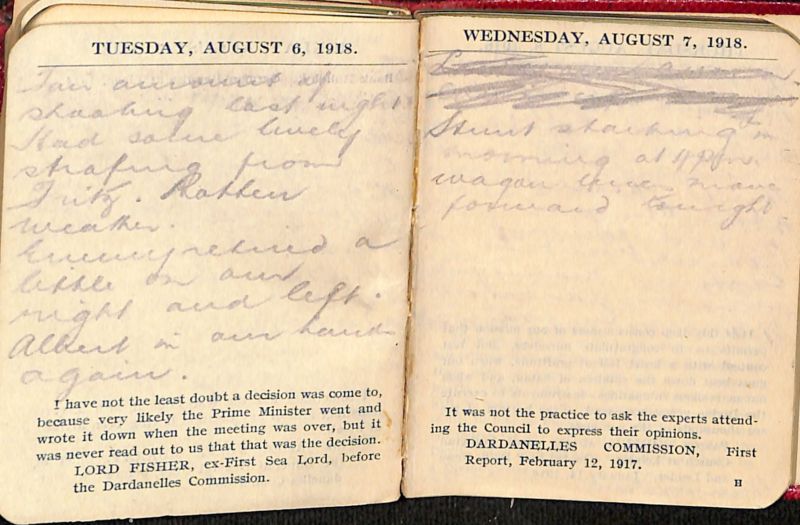 TUESDAY, AUGUST 6, 1918.
Fair amount of
shooting last night
Had some lively
strafing from
Fritz. Rotten
weather.
Enemy retired a
little on our
right and left.
Albert in our hands
again.
I have not the least doubt a decision was come to,
because very likely the Prime Minister went and
wrote it down when the meeting was over, but it
was never read out to us that that was the decision.
LORD FISHER, ex-First Sea Lord, before
the Dardanelles Commission.
WEDNESDAY, AUGUST 7, 1918.
Stunt starting
morning at 4 pm.
wagon lines move
forward tonight
It was not the practice to ask the experts attend-
ing the Council to express their opinions.
DARDANELLES COMMISSION, First
Report, February 12, 1917.
H